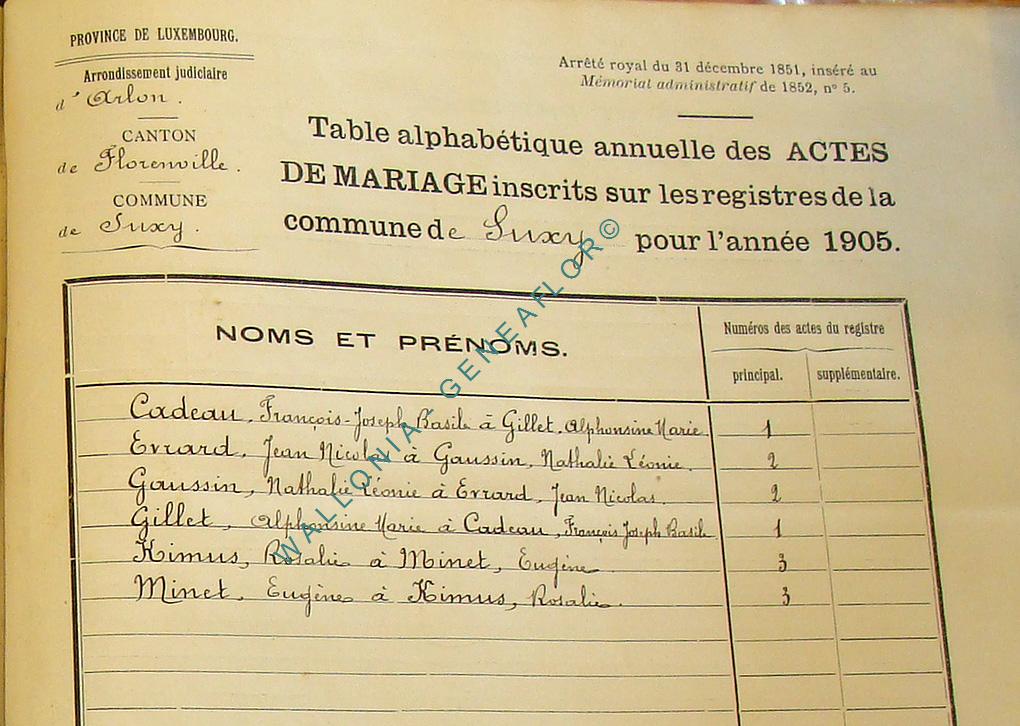 PROVINCE DE LUXEMBOURG.
Arrondissement judiciaire
d'Arlon.
CANTON
de Florenville.
COMMUNE
de Suxy.
Arrêté royal du 31 décembre 1851, inséré au
Mémorial administratif de 1852, n° 5.
Table alphabétique annuelle des ACTES
DE MARIAGE inscrits sur les registres de la
commune de Suxy pour l'année 1905.
NOMS ET PRÉNOMS.
Numéros des actes du registre
principal. supplémentaire.
Cadeau, François-Joseph Basile à Gillet, Alphonsine Marie 1
Errard, Jean Nicolas à Gaussin, Nathalie Léonie. 2
Gaussin, Nathalie Léonie à Errard, Jean Nicolas. 2
Gillet, Alphonsine Marie à Cadeau, François Joseph Basile 1
Kimus, Rosalie à Minet, Eugène 3
Minet, Eugène à Kimus, Rosalie. 3
WALLONIA-GENEAFLOR©